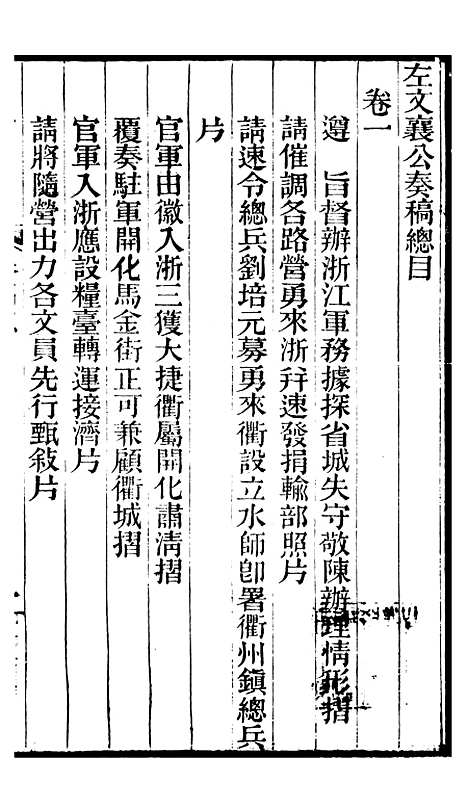 左文襄公奏稿總目
卷一
遵 旨督辦浙江軍務據探省城失守敬陳辦理情形摺
請催調各路營勇來浙幷速發捐輸部照片
請速令總兵劉培元募勇來衢設立水師卽署衢州鎮總兵
片
官軍由徽入浙三獲大捷衢屬開化肅淸摺
覆奏駐軍開化馬金街正可兼顧衢城摺
官軍入浙應設糧臺轉運接濟片
請將隨營出力各文員先行甄敍片